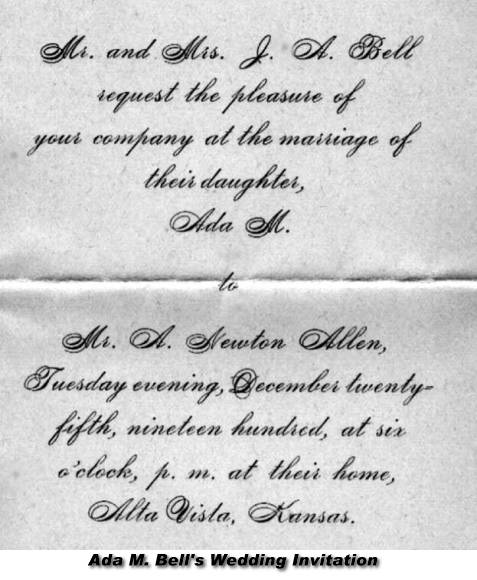 Mr. and Mrs. J. A. Bell
request the pleasure of
your company at the marriage of
their daughter,
Ada M.
to
Mr. A. Newton Allen,
Tuesday evening, December twenty-
fifth, nineteen hundred, at six
o'clock, p. m. at their home,
Alta Vista, Kansas.
Ada M. Bell's Wedding Invitation